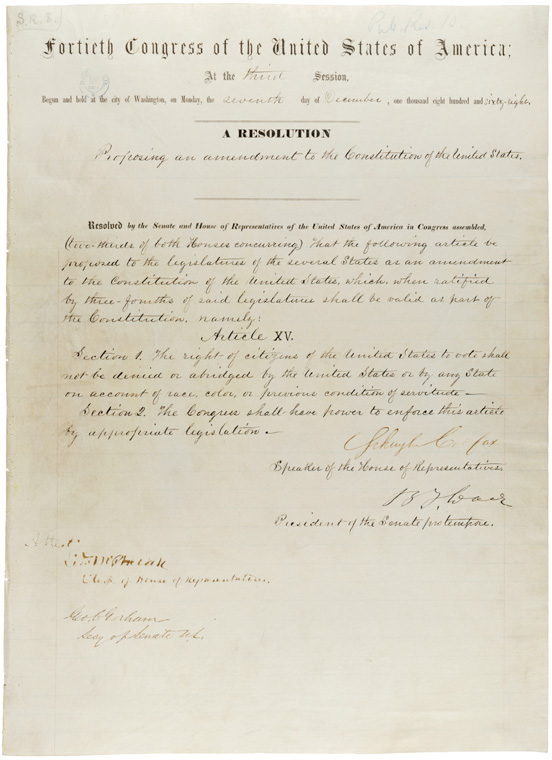 S.R. 8.
Pub. Res. 10
Fortieth Congress of the United States of America;
At the third Session,
Begun and held at the city of Washington, on Monday, the seventh day of December, one thousand eight hundred and sixty-eight.
A RESOLUTION
Proposing an amendment to the Constitution of the United States.
Resolved by the Senate and House of Representatives of the United States of America in Congress assembled,
(two-thirds of both Houses concurring) That the following article be
proposed to the legislatures of the several States as an amendment
to the Constitution of the United States, which, when ratified
by three-fourths of said legislatures shall be valid as part of
the Constitution, namely:
Article XV.
Section 1. The right of citizens of the United States to vote shall
not be denied or abridged by the United States or by any State
on account of race, color, or previous condition of servitude—
Section 2. The Congress shall have power to enforce this article
by appropriate legislation—
Schuyler Colfax
Speaker of the House of Representatives.
B F Wade
President of the Senate protempore.
Attest:
Clerk of House of Representatives.
Geo. C. Gorham
Secy of Senate U.S.